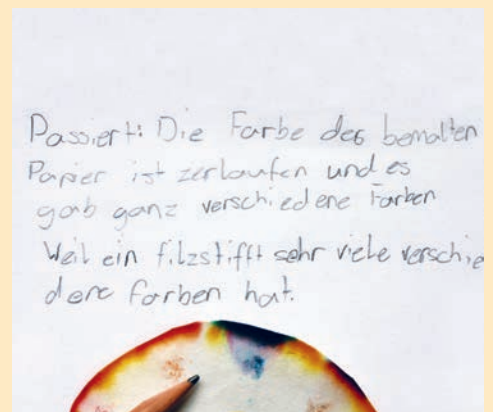 Passiert: Die Farbe des bemalten
Papier ist zerlaufen und es
gab ganz verschiedene Farben
Weil ein filzstifft sehr viele verschie
dene farben hat.